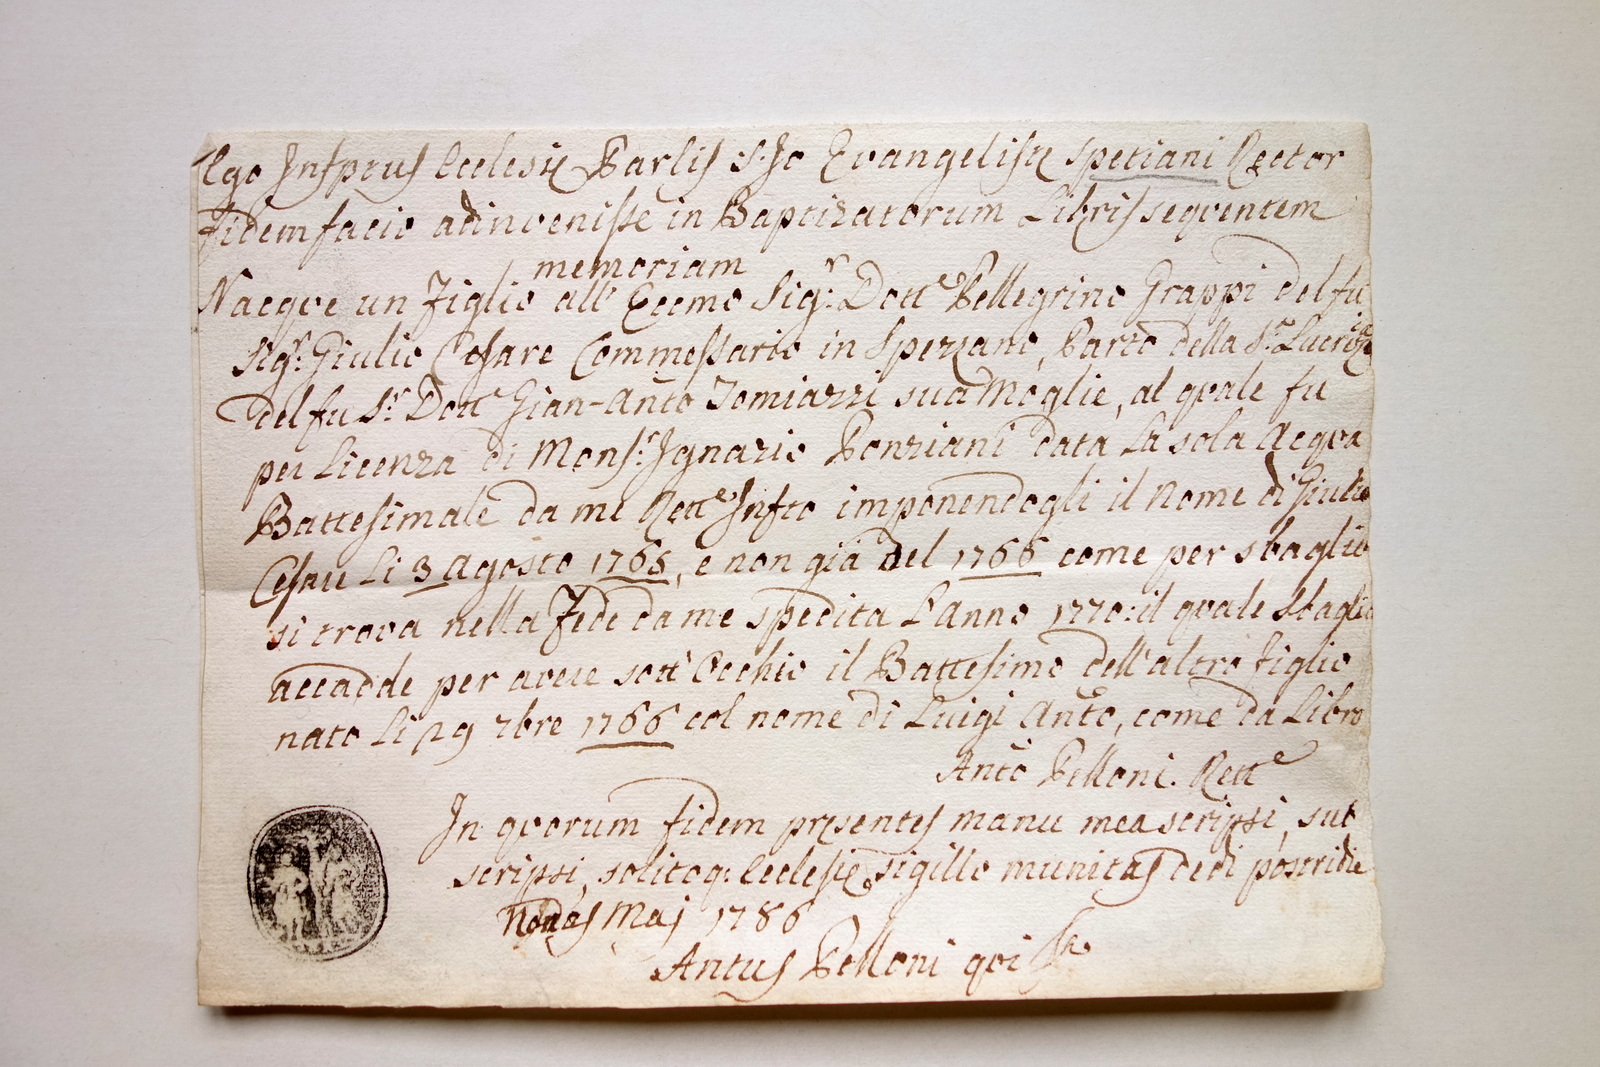 Ego Infptus Ecclesię Parlis S: Jo Evangelistę Spetiani Rector
fidem facio adinvenisse in Baptizatorum Libris seqventem
memoriam
Nacqve un Figlio all' Eccmo Sigr: Dotte Pellegrino Grappi del fu
Sigr: Giulio Cesare Commessario in Spezzano, Parto della Sra Lucrezia
del fu Sr: Dotte Gian-Anto Tomiazzi sua Moglie, al qvale fu
per Licenza di Monsr: Ignazio Ponziani data la sola Acqva
Battesimale da me Rette Infto imponendogli il Nome di Giulio
Cesare li 3 Agosto 1765, e non già del 1766 come per sbaglio
si trova nella Fede da me spedita l'Anno 1770: il qvale sbaglio
accadde per avere sott'Occhio il Battesimo dell'altro Figlio
nato li 29 7bre 1766 col nome di Luigi Anto, come da Libro
Anto Pelloni. Rette
In qvorum fidem pręsentes manu mea scripsi, sub
scripsi, solitoq: Ecclesię sigillo munitas dedi postridie
Nonas Maj 1786
Antus Pelloni qvi